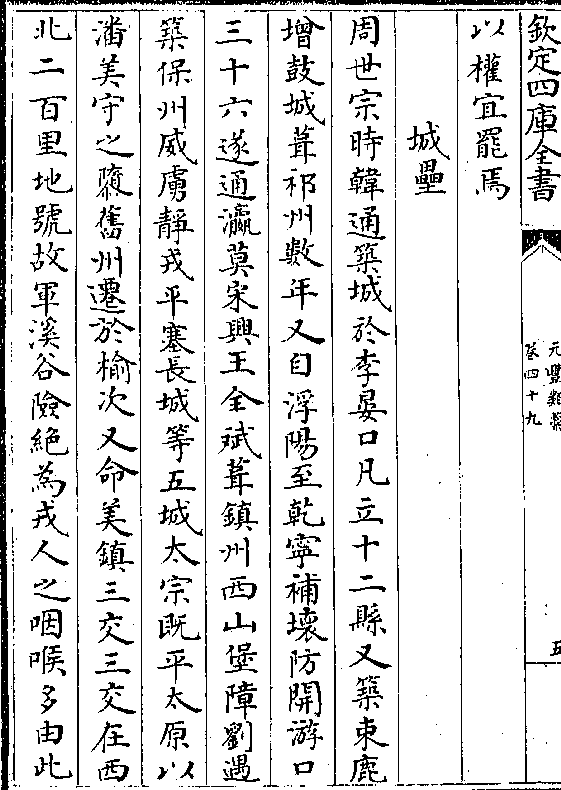 欽定四庫全書
元豐類藁
卷四十九
五
以權宜罷焉
城壘
周世宗時韓通築城於李晏口凡立十二縣又築束鹿
增鼓城葺祁州數年又自浮陽至乾寧補壞防開游口
三十六遂通瀛莫宋興王全斌葺鎮州西山堡障劉遇
築保州威虜靜戎平塞長城等五城太宗既平太原以
潘美守之隳舊州遷於榆次又命美鎮三交三交在西
北二百里地號故軍溪谷險絶為戎人之咽喉多由此